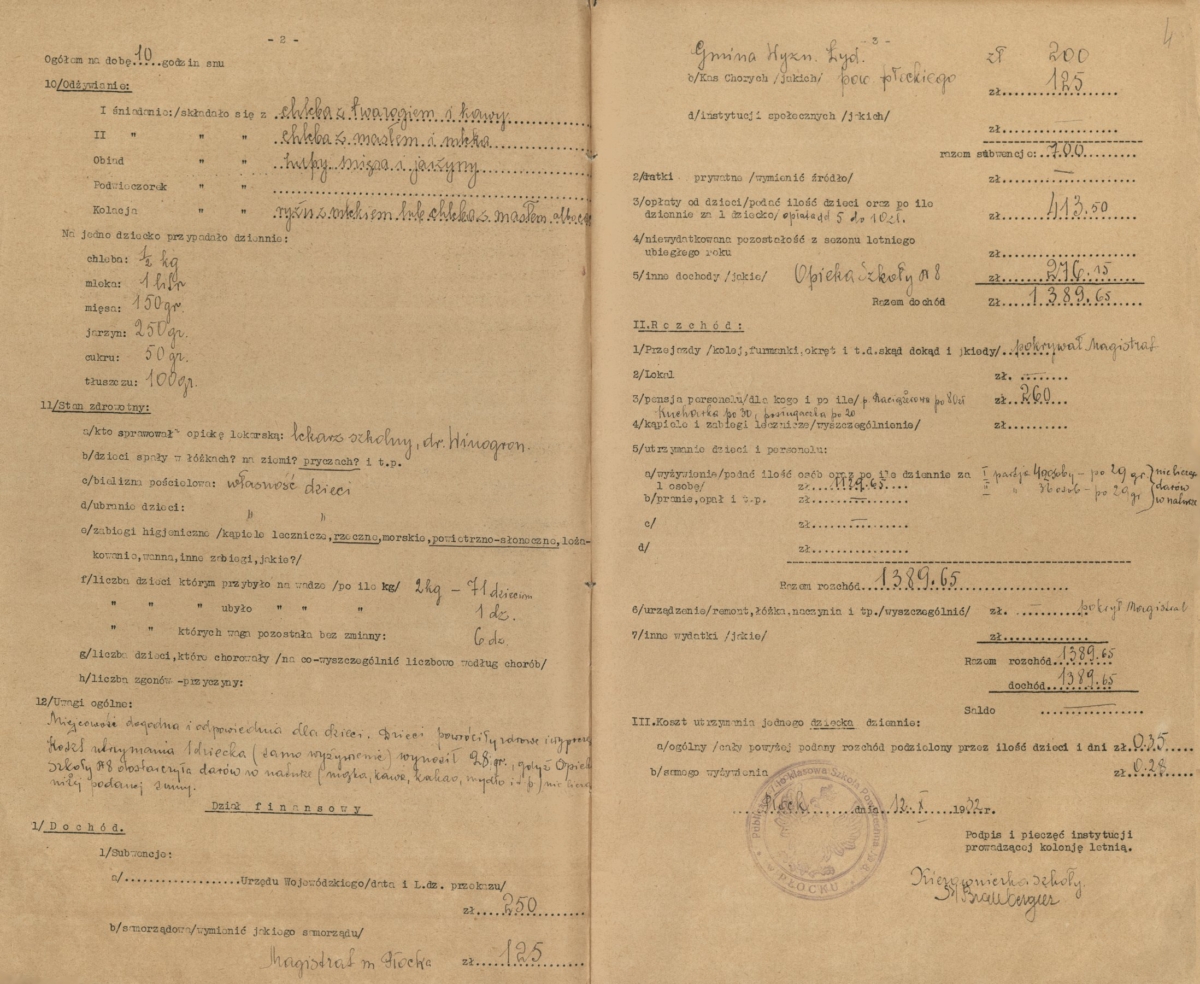 - 2 -
Ogółem na dobę 10 godzin snu
10/Odżywianie:
I śniadanie:/składało się z chleba z twarogiem i kawy
II " " " chleba z masłem i mleka
Obiad " " zupy mięsa i jarzyny
Podwieczorek " "
Kolacja " " ryżu z mlekiem lub chleba z masłem albo
Na jedno dziecko przypadało dziennie:
chleba: ½ kg
mleka: 1 litr
mięsa: 150 gr.
jarzyn: 250 gr.
cukru: 50 gr.
tłuszczu: 100 gr.
11/Stan zdrowotny:
a/kto sprawował opiekę lekarską: lekarz szkolny, dr. Winogron.
b/dzieci spały w łóżkach? na ziemi? pryczach? i t.p.
c/bielizna pościelowa: własność dzieci
d/ubranie dzieci: " "
e/zabiegi higjeniczne /kąpiele lecznicze,rzeczne,morskie,powietrzno-słoneczne,leża-
kowanie,wanna,inne zabiegi,jakie?/
f/liczba dzieci którym przybyło na wadze /po ile kg/ 2 kg - 71 dzieciom
" " " ubyło " " " 1 dz.
" " których waga pozostała bez zmiany: 6 dz.
g/liczba dzieci,które chorowały /na co-wyszczególnić liczbowo według chorób/
h/liczba zgonów -przyczyny:
12/Uwagi ogólne:
Miejscowość dogodna i odpowiednia dla dzieci. Dzieci powróciły zdrowe i
Koszt utrzymania 1 dziecka (samo wyżywienie) wynosił 28 gr., gdyż
Szkoły № 8 dostarczyła darów w naturze (mąka, kawa, kakao, mydło i t p)
podanej sumy.
Dział finansowy
1/ Dochód.
1/Subwencje:
a/..................Urzędu Wojewódzkiego/data i L.dz. przekazu/
zł. 250
b/samorządowe/wymienić jakiego samorządu/
Magistrat m Płocka zł. 125
- 3 -
4
Gmina Wyzn. Żyd. zł 200
b/Kas Chorych /jakich/ pow. płockiego zł. 125
d/instytucji społecznych /jakich/
zł. —
razem subwencje: 700
2/datki prywatne /wymienić źródło/ zł. —
3/opłaty od dzieci/podać ilość dzieci oraz po ile
dziennie za 1 dziecko/ opłata od 5 do 10 zł. zł. 413.50
4/niewydatkowana pozostałość z sezonu letniego
ubiegłego roku zł.
5/inne dochody /jakie/ Opieka Szkoły № 8 zł. 276.15
Razem dochód zł. 1389.65
II.Rozchód:
1/Przejazdy /kolej,furmanki,okręt i t.d.skąd dokąd i jkiedy/ pokrywał Magistrat
2/Lokal zł. —
3/pensja personelu/dla kogo i po ile/ p. po 80 zł zł. 260
Kucharka po 30, posługaczka po 20
4/kąpiele i zabiegi lecznicze/wyszczególnienie/ zł.
5/utrzymanie dzieci i personelu:
a/wyżywienie/podać ilość osób oraz po ile dziennie za I partja 40 osoby - po 29 gr. } nie licząc
1 osobę/ zł. 1129.65 II " 38 osob - po 29 gr } darów
b/pranie,opał i t.p. zł. — w naturze
c/ zł. —
d/ zł.
Razem rozchód 1389.65
6/urządzenie/remont,łóżka,naczynia i tp./wyszczególnić/ zł. — pokrył Magistrat
7/inne wydatki /jakie/ zł.
Razem rozchód 1389.65
dochód 1389.65
Saldo —
III.Koszt utrzymania jednego dziecka dziennie:
a/ogólny /cały powyżej podany rozchód podzielony przez ilość dzieci i dni zł. 0.35
b/samego wyżywienia zł. 0.28
Płock dnia 12. X 1932 r.
Podpis i pieczęć instytucji
prowadzącej kolonję letnią.
Kierowniczka szkoły